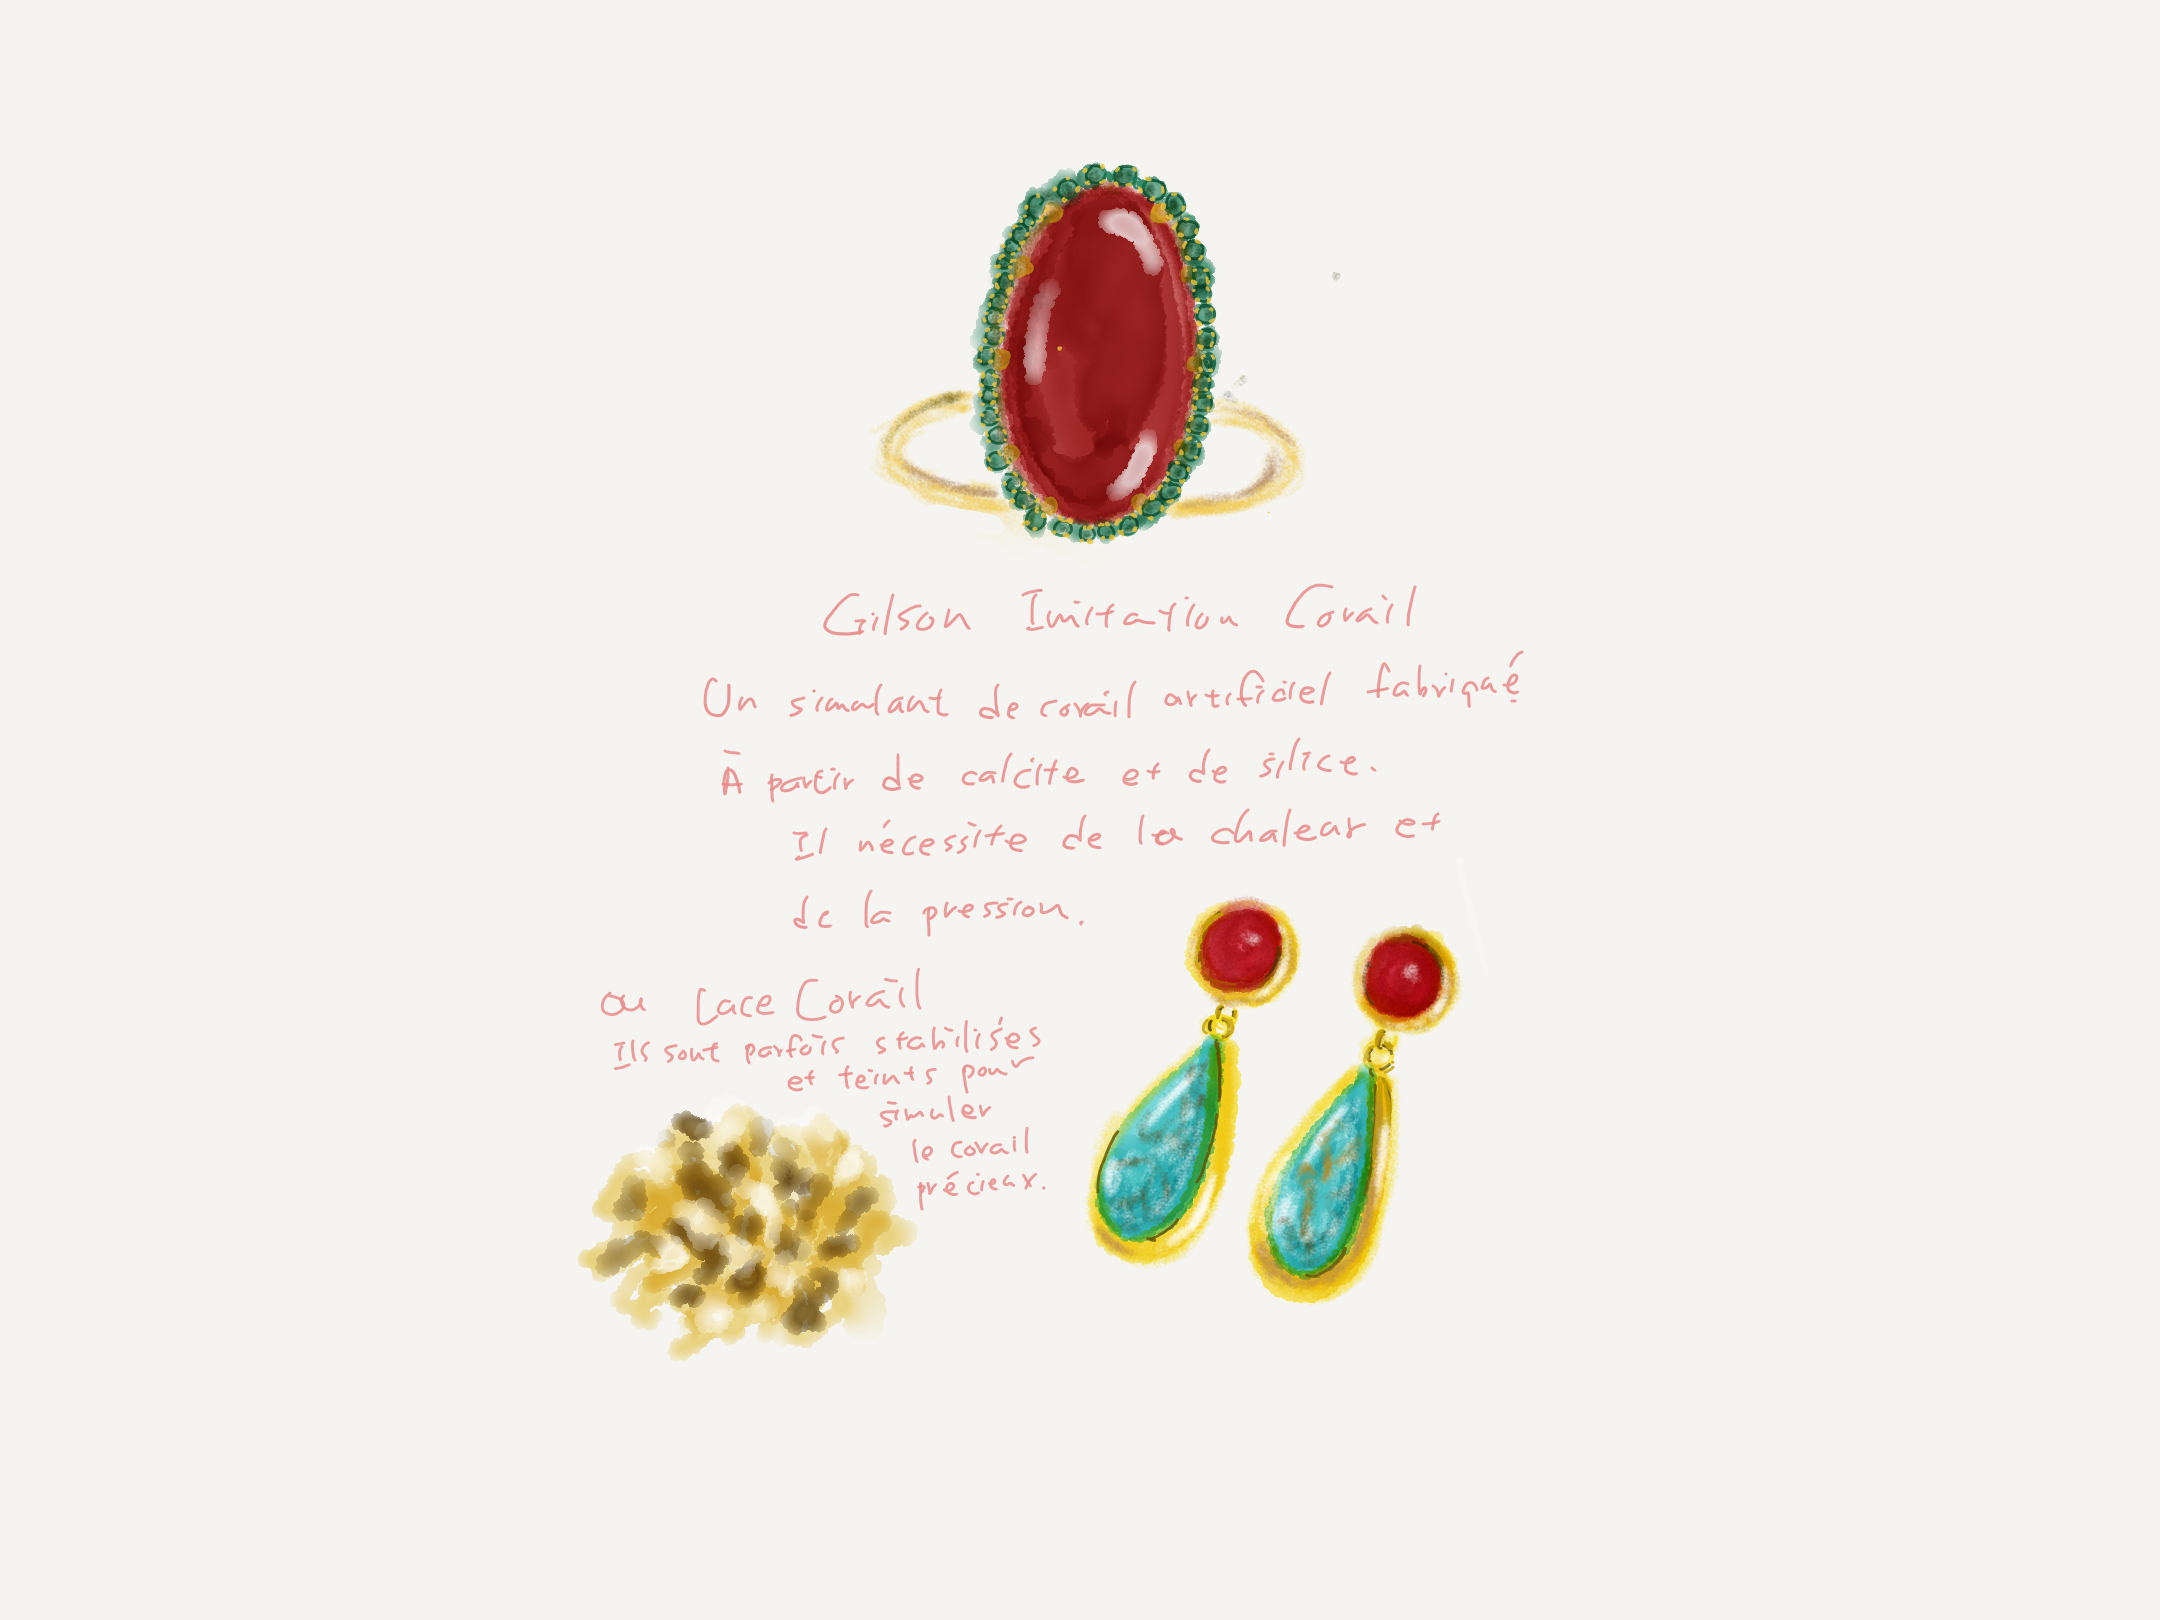 Gilson Imitation Corail
Un simulant de corail artificiel fabriqué
À partir de calcite et de silice.
Il nécessite de la chaleur et
de la pression.
ou Lace Corail
Ils sont parfois stabilisés
et teints pour
simuler
le corail
précieux.